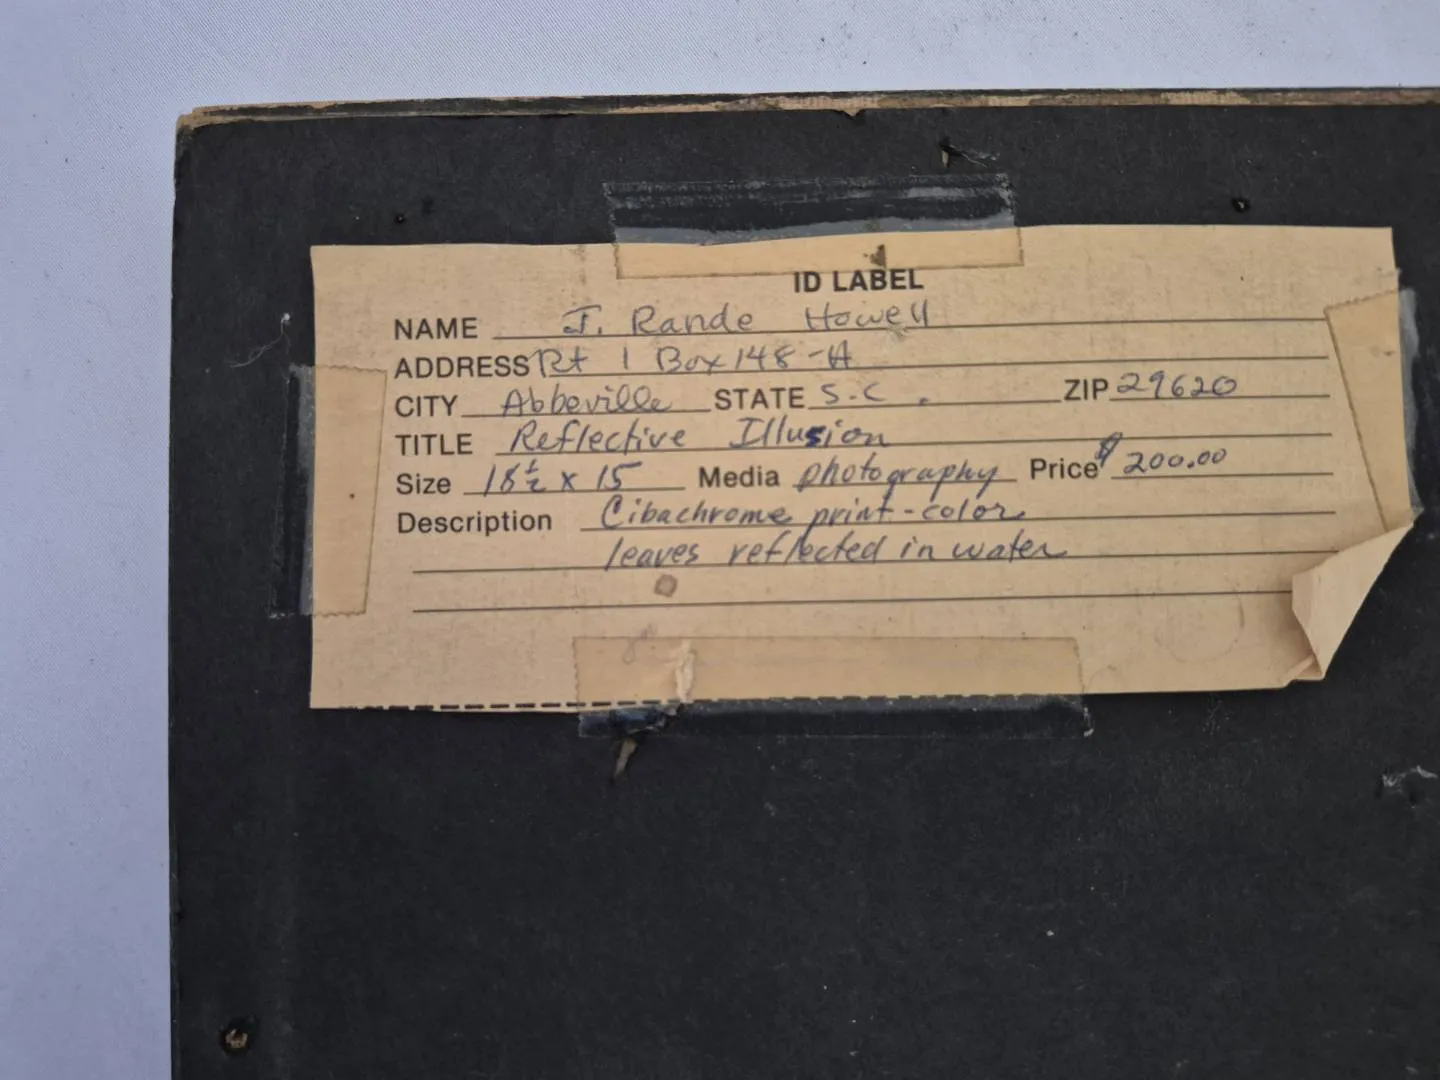 ID LABEL
NAME J. Rande Howell
ADDRESS Rt 1 Box 148-A
CITY Abbeville STATE S.C. ZIP 29620
TITLE Reflective Illusion
Size 18½ x 15 Media photography Price $200.00
Description Cibachrome print-color
leaves reflected in water